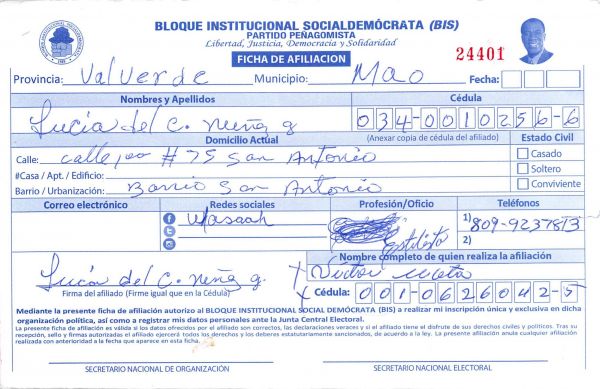 BLOQUE INSTITUCIONAL SOCIALDEMÓCRATA (BIS)
PARTIDO PEÑAGOMISTA
Libertad, Justicia, Democracia y Solidaridad
FICHA DE AFILIACION
24401
Provincia: Valverde Municipio: Mao Fecha:
Nombres y Apellidos Cédula
Lucía del C. Núñez g 034-0010256-6
Domicilio Actual (Anexar copia de cédula del afiliado) Estado Civil
Calle: # 75 San Antonio Casado
#Casa / Apt. / Edificio: Soltero
Barrio / Urbanización: Barrio San Antonio Conviviente
Correo electrónico Redes sociales Profesión/Oficio Teléfonos
Wasaah 1) 809-9237813
estilista 2)
Nombre completo de quien realiza la afiliación
Lucía del C. Núñez g. x Victor Mota
Firma del afiliado (Firme igual que en la Cédula) x Cédula: 001-0626042-5
Mediante la presente ficha de afiliación autorizo al BLOQUE INSTITUCIONAL SOCIAL DEMÓCRATA (BIS) a realizar mi inscripción única y exclusiva en dicha
organización política, así como a registrar mis datos personales ante la Junta Central Electoral.
La presente ficha de afiliación es válida si los datos ofrecidos por el afiliado son correctos, las declaraciones veraces y si el afiliado tiene el disfrute de sus derechos civiles y políticos. Tras su
recepción, sello y firmas autorizadas el afiliado ejercerá todos los derechos y los deberes estatutariamente sancionados, de acuerdo a la ley. La presente afiliación anula cualquier afiliación
realizada con anterioridad a la fecha que consta en esta ficha.
SECRETARIO NACIONAL DE ORGANIZACIÓN SECRETARIO NACIONAL ELECTORAL